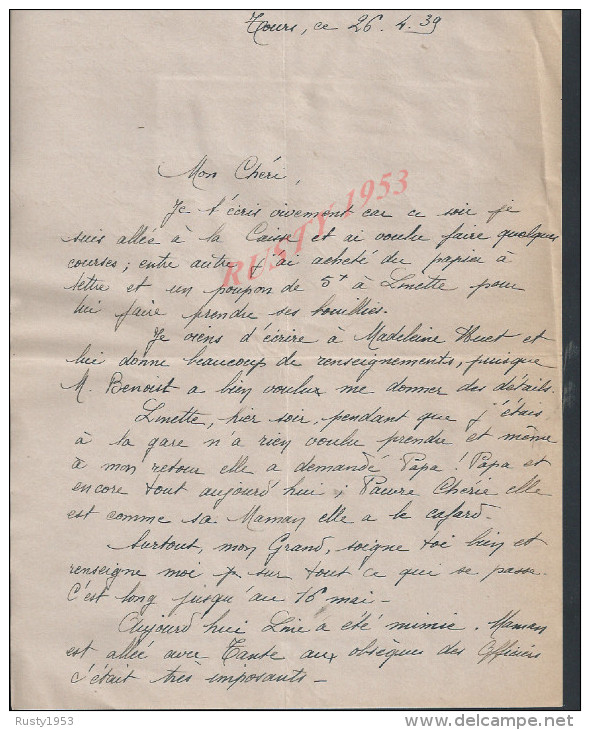 Tours, ce 26. 4. 39
Mon Chéri,
Je t'écris vivement car ce soir je
suis allée à la Caisse et ai voulu faire quelques
courses ; entre autre j'ai acheté du papier à
lettre et un poupon de 5f à Linette pour
lui faire prendre ses bouillies.
Je viens d'écrire à Madeleine Huet et
lui donne beaucoup de renseignements, puisque
M. Benoist a bien voulu me donner des détails.
Linette, hier soir, pendant que j'étais
à la gare n'a rien voulu prendre et même
à mon retour elle a demandé Papa ! Papa et
encore tout aujourd'hui ; Pauvre Chérie elle
est comme sa Maman elle a le cafard -
Surtout, mon Grand, soigne toi bien et
renseigne moi sur tout ce qui se passe.
C'est long jusqu'au 16 mai -
Aujourd'hui Line a été mimie. Maman
est allée avec Tante aux obsèques des Officiers
c'était très imposants -
RUSTY 1953
Rusty1953
www.delcampe.net